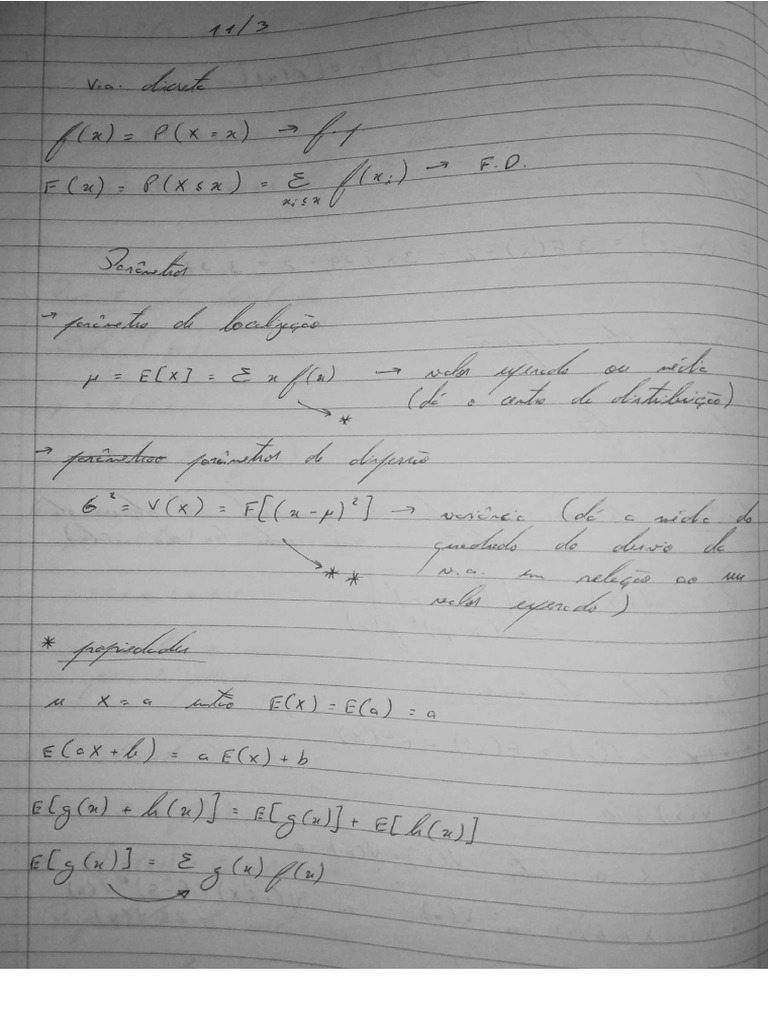 11/3
v.a. discreta
f(x) = P(X = x) → f.p
F(x) = P(X ≤ x) = Σ f(xi) → F.D.
xi ≤ x
Parâmetros
→ parâmetro de localização
μ = E[X] = Σ x f(x) → valor esperado ou média
(dá o centro de distribuição)
*
→ parâmetroo parâmetros de dispersão
σ² = V(X) = E[(x-μ)²] → variância (dá a média do
quadrado do desvio da
* *
v.a. em relação ao seu
valor esperado)
* propiedades
se X = a então E(X) = E(a) = a
E(aX + b) = a E(X) + b
E[g(x) + h(x)] = E[g(x)] + E[h(x)]
E[g(x)] = Σ g(x) f(x)